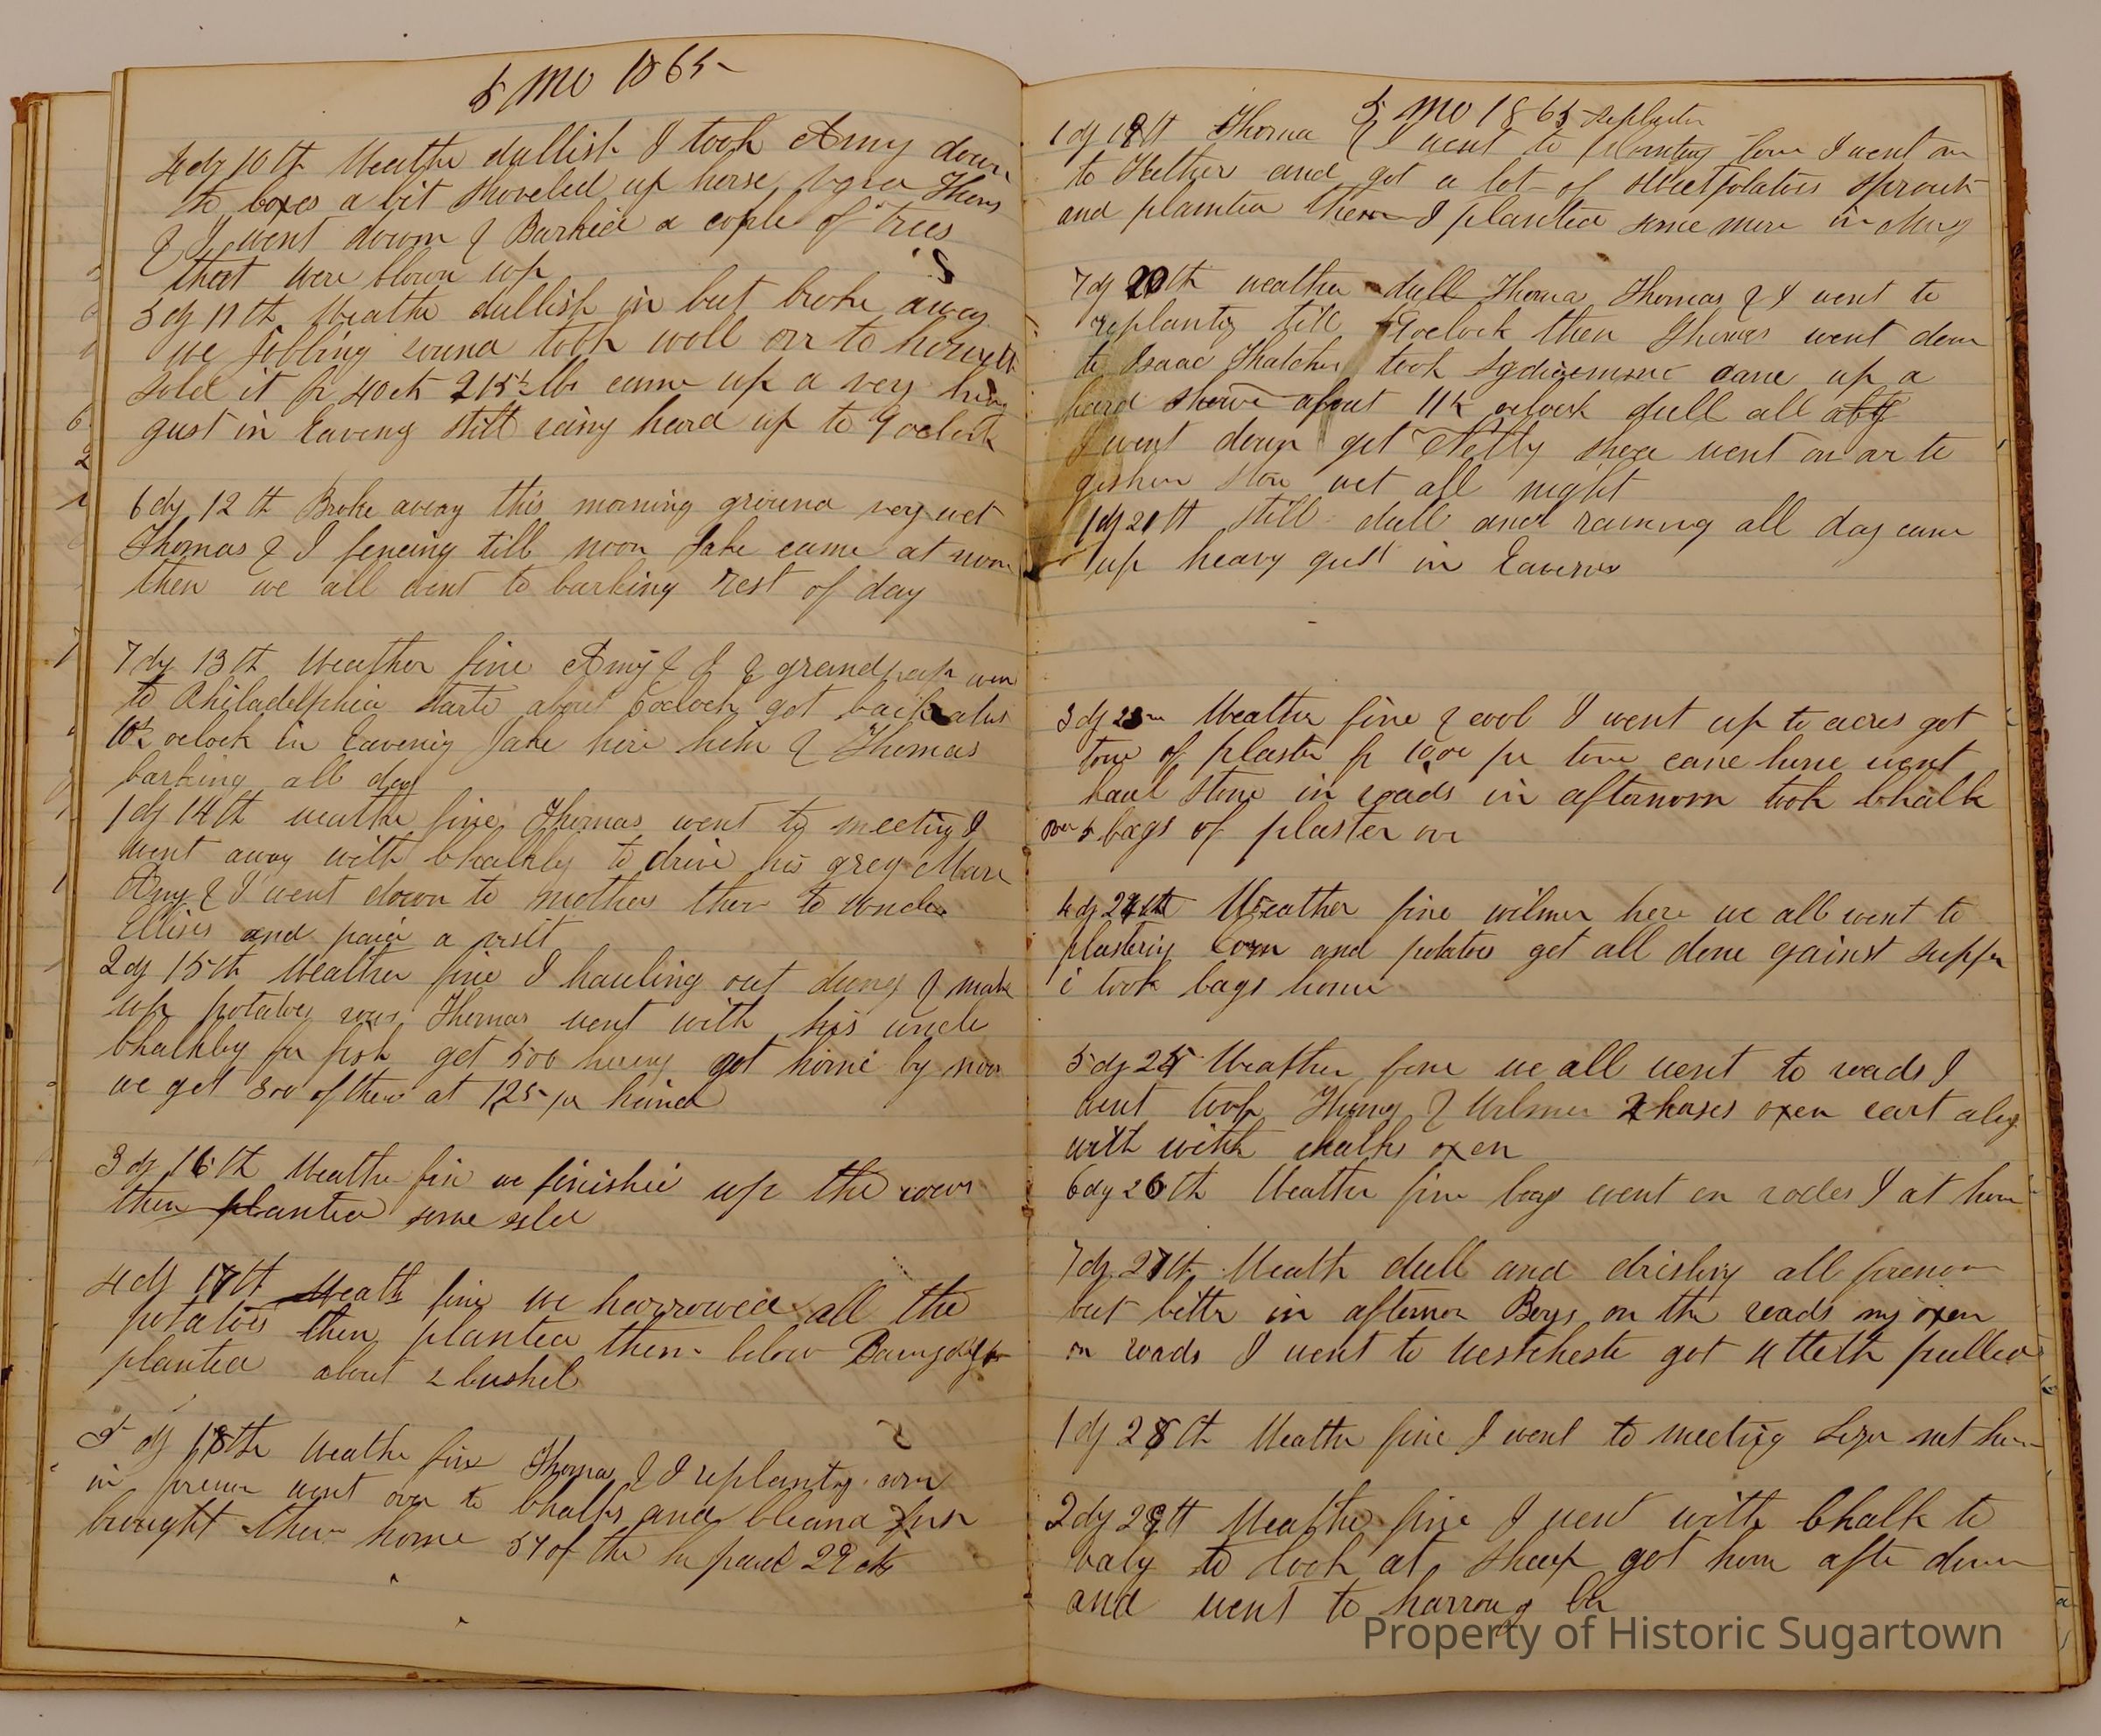 5 mo 1865
4 dy 10th Weathe dullish I took Amy down
to boxes a bit shoveled up horse Thoms
& I went down & Barked a cople of trees
that were blown up
5 dy 11th Weathe dullish in but broke away
we jobbing round took woll orr to
sold it fr 40 cts 215½ lbs came up a very
gust in Eaveng still reing heard up to 9 oclock
6 dy 12th Broke away this morning ground very wet
Thomas & I fencing till noon Jake came at noon
then we all went to barking rest of day
7 dy 13th Weather fine Amy & I & grandpap wen
to Philadelphia starte about 6 oclock got back
10½ oclock in Eavenig Jake here him & Thomas
barking all day
1 dy 14th weathe fine Thomas went to meeting I
went away with Chalkly to drive his grey Mare
Amy & I went down to mothers then to Uncle
Ellises and paid a visit
2 dy 15th Weather fine I hauling out dung & mark
up potatoes rows Thomas went with his uncle
Chalkley for fish get 500 hering got home by noon
we get 300 of them at 125 pr hund
3 dy 16th Weathe fin we finished up the rows
then planted some
4 dy 17th Weath fine we harrowed all the
potatoes then planted them below
planted about 2 bushel
5 dy 18th Weathe fine Thomas & I replanting corn
in forenn went over to Chalks and
brought them home 57 of the he paid 29 cts
5 mo 1865 replanten
1 dy 19th Thoma & I went to planting corn I went on
to and got a lot of sweetpotatoes sprouts
and planted them I planted some more in
7 dy 20th weather dull Thoma Thomas & I went to
replanting till 9 oclock then Thomas went down
to Isaac Thatcher took came up a
hard shower about 11½ oclock dull all
I went down get Netty went on or to
goshen store wet all night
1 dy 21th still dull and raining all day came
up heavy gust in
3 dy 23 Weather fine & cool I went up to acres got
tone of plaster fr 10,00 per tone came home went
haul stone in roads in afternoon took Chalk
over 5 bags of plaster ov
4 dy 24th Weather fine wilmer here we all went to
plastering Corn and potatoes get all done gainst supper
i took bags home
5 dy 25 Weather fine we all went to roads I
went took Thomas & Wilmer 2 horses oxen cart alog
with with chalks oxen
6 dy 26th Weather fine boys went on rodes I at hom
7 dy 27th Weath dull and drisling all forenoon
but bette in afternon Boys on the roads my oxen
on roads I went to Westcheste got 4 tteth pulled
1 dy 28th Weather fine I went to meeting
2 dy 29th Weathe fine I went with Chalk to
to look at sheep got home afte
and went to harrowg
Property of Historic Sugartown